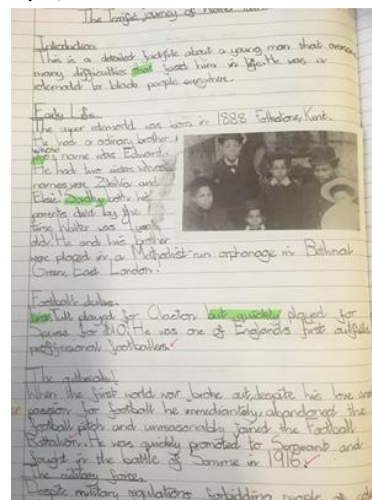 The journey of
Introduction
This is a detailed factfile about a young man that
many difficulties that faced him in life. He was a
rolemodel to black people
Early Life
The super was born in 1888 Folkstone, Kent.
He had a ordinary brother
whose name were Edward.
He had two sisters whose
names were and
Elsie. Sadly both his
parents died by the
time Walter was 9 years
old. He and his brother
were placed in a Methodist-run orphanage in Bethnal
Green, East London.
Football clubs.
Tull played for Clacton but quickly played for
Spurse for £10. He was one of England's first
proffesional footballers.
The outbreak!
When the first world war broke out, despite his love and
passion for football he immediantely abandoned the
football pitch and joined the Football
Battalion. He was quickly promoted to Sergeant and
fought in the battle of Somme in 1916.
The military force.
Despite military regulations forbidding people of